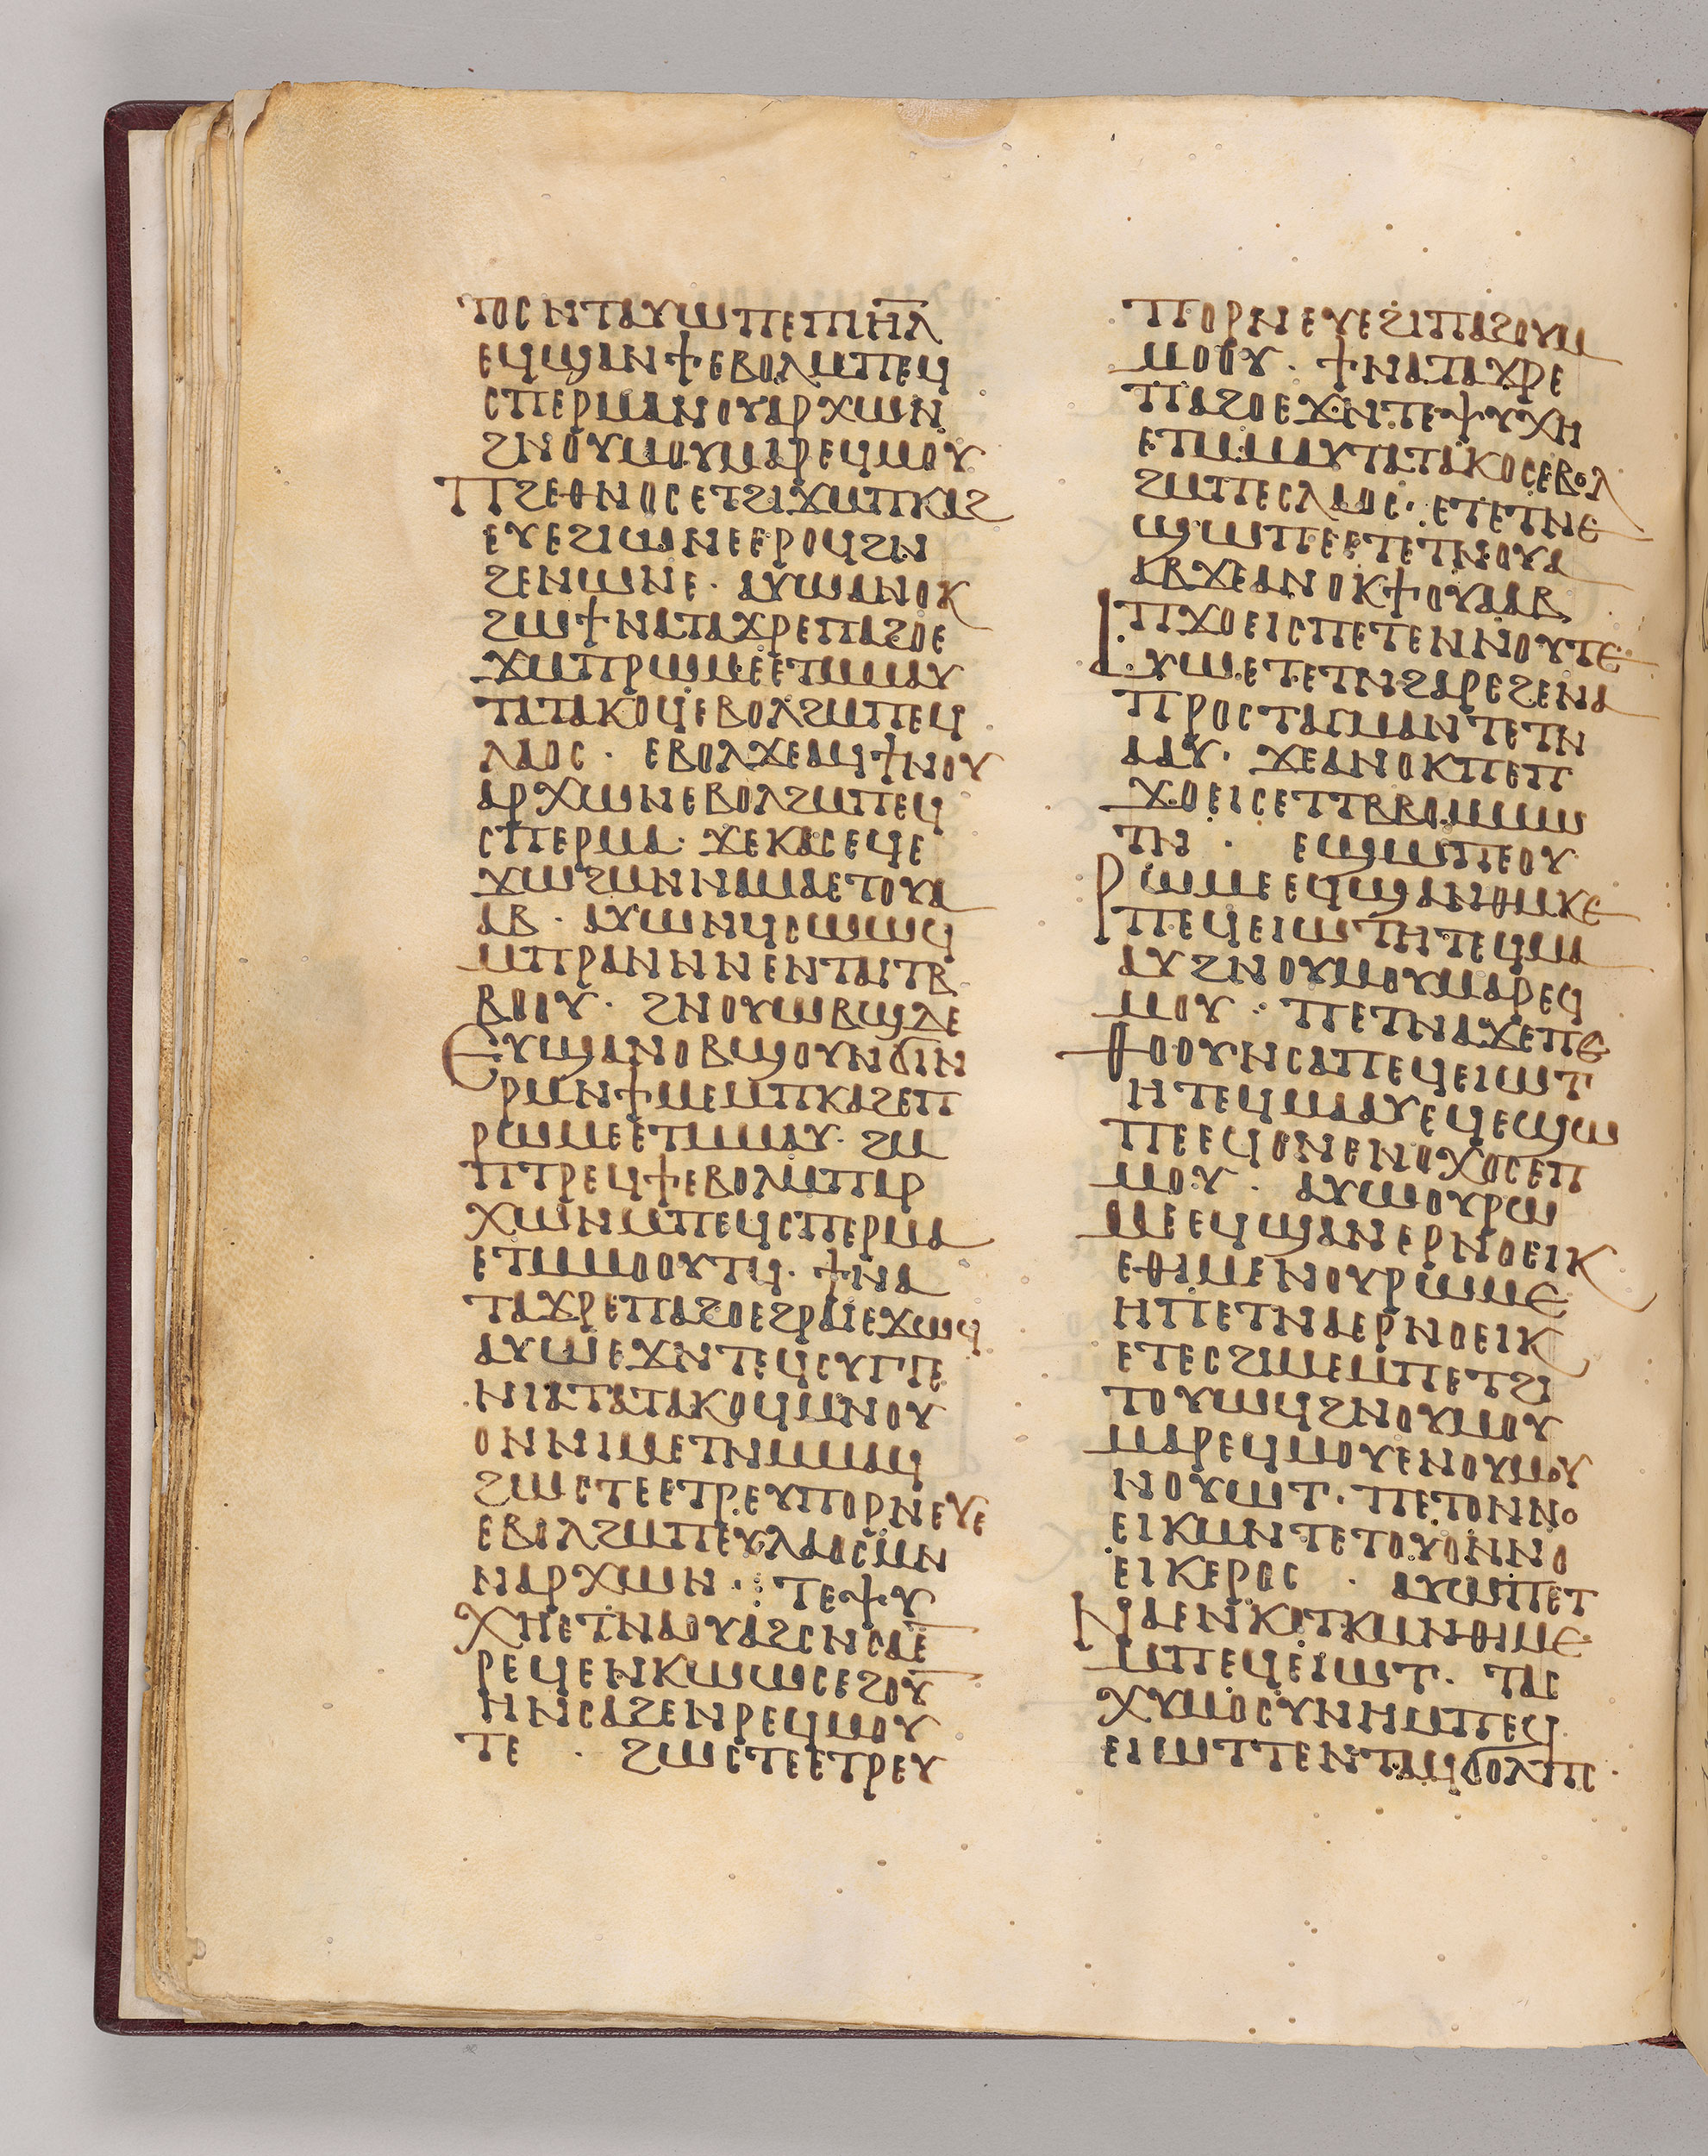 ⲧⲟⲥⲛⲧⲁⲩϣⲱⲡⲉϩⲙⲡⲓⲏⲗ
ⲉϥϣⲁⲛϯⲉⲃⲟⲗⲙⲡⲉϥ
ⲥⲡⲉⲣⲙⲁⲛⲟⲩⲁⲣⲭⲱⲛ
ϩⲛⲟⲩⲙⲟⲩⲙⲁⲣⲉϥⲙⲟⲩ
ⲡϩⲉⲑⲛⲟⲥⲉⲧϩⲓϫⲙⲡⲕⲁϩ
ⲉⲩⲉϩⲓⲱⲛⲉⲉⲣⲟϥϩⲛ
ϩⲉⲛⲱⲛⲉ · ⲁⲩⲱⲁⲛⲟⲕ
ϩⲱϯⲛⲁⲧⲁϫⲣⲉⲡⲁϩⲟⲉ
ϫⲙⲡⲣⲱⲙⲉⲉⲧⲙⲙⲁⲩ
ⲧⲁⲧⲁⲕⲟϥⲉⲃⲟⲗϩⲙⲡⲉϥ
ⲗⲁⲟⲥ · ⲉⲃⲟⲗϫⲉⲁϥϯⲛⲟⲩ
ⲁⲣⲭⲱⲛⲉⲃⲟⲗϩⲙⲡⲉϥ
ⲥⲡⲉⲣⲙⲁ · ϫⲉⲕⲁⲥⲉϥⲉ
ϫⲱϩⲙⲛⲛⲁⲙⲁⲉⲧⲟⲩⲁ
ⲁⲃ · ⲁⲩⲱⲛϥⲥⲱⲱϥ
ⲙⲡⲣⲁⲛⲛⲛⲉⲛⲧⲁⲓⲧⲃ
ⲃⲟⲟⲩ · ϩⲛⲟⲩⲱⲃϣⲇⲉ
ⲉⲩϣⲁⲛⲟⲃϣⲟⲩⲛϭⲓⲛ
ⲣⲙⲛϯⲙⲉⲙⲡⲕⲁϩⲉⲡ
ⲣⲱⲙⲉⲉⲧⲙⲙⲁⲩ · ϩⲙ
ⲡⲧⲣⲉϥϯⲉⲃⲟⲗⲙⲡⲁⲣ
ⲭⲱⲛⲙⲡⲉϥⲥⲡⲉⲣⲙⲁ
ⲉⲧⲙⲙⲟⲟⲩⲧϥ · ϯⲛⲁ
ⲧⲁϫⲣⲉⲡⲁϩⲟⲉϩⲣⲁⲓⲉϫⲱϥ
ⲁⲩⲱⲉϫⲛⲧⲉϥⲥⲩⲅⲅⲉ
ⲛⲓⲁⲧⲁⲧⲁⲕⲟϥⲙⲛⲟⲩ
ⲟⲛⲛⲓⲙⲉⲧⲛⲙⲙⲁϥ
ϩⲱⲥⲧⲉⲉⲧⲣⲉⲩⲡⲟⲣⲛⲉⲩⲉ
ⲉⲃⲟⲗϩⲙⲡⲉⲩⲗⲁⲟⲥⲙⲛ
ⲛⲁⲣⲭⲱⲛ · ⲧⲉⲯⲩ
ⲭⲏⲉⲧⲛⲁⲟⲩⲁϩⲥⲛⲥⲁϩⲉ
ⲣⲉϥⲉⲛⲕⲱⲱⲥⲉϩⲟⲩ
ⲏⲛⲥⲁϩⲉⲛⲣⲉϥⲙⲟⲩ
ⲧⲉ · ϩⲱⲥⲧⲉⲉⲧⲣⲉⲩ
ⲡⲟⲣⲛⲉⲩⲉϩⲓⲡⲁϩⲟⲩⲙ
ⲙⲟⲟⲩ · ϯⲛⲁⲧⲁϫⲣⲉ
ⲡⲁϩⲟⲉϫⲛⲧⲉⲯⲩⲭⲏ
ⲉⲧⲙⲙⲁⲩⲧⲁⲧⲁⲕⲟⲥⲉⲃⲟⲗ
ϩⲙⲡⲉⲥⲗⲁⲟⲥ · ⲉⲧⲉⲧⲛⲉ
ϣⲱⲡⲉⲉⲧⲉⲧⲛⲟⲩⲁ
ⲁⲃϫⲉⲁⲛⲟⲕϯⲟⲩⲁⲁⲃ
ⲡϫⲟⲉⲓⲥⲡⲉⲧⲉⲛⲛⲟⲩⲧⲉ
ⲁⲩⲱⲉⲧⲉⲧⲛϩⲁⲣⲉϩⲉⲛⲁ
ⲡⲣⲟⲥⲧⲁⲅⲙⲁⲛⲧⲉⲧⲛ
ⲁⲁⲩ · ϫⲉⲁⲛⲟⲕⲡⲉⲡ
ϫⲟⲉⲓⲥⲉⲧⲧⲃⲃⲟⲙⲙⲱ
ⲧⲛ · ⲉϣⲱⲡⲉⲟⲩ
ⲣⲱⲙⲉⲉϥϣⲁⲛⲑⲙⲕⲉ
ⲡⲉϥⲉⲓⲱⲧⲏⲧⲉϥⲙⲁ
ⲁⲩϩⲛⲟⲩⲙⲟⲩⲙⲁⲣⲉϥ
ⲙⲟⲩ · ⲡⲉⲧⲛⲁϫⲉⲡⲉ
ⲑⲟⲟⲩⲛⲥⲁⲡⲉϥⲉⲓⲱⲧ
ⲏⲧⲉϥⲙⲁⲁⲩⲉϥⲉϣⲱ
ⲡⲉⲉϥⲟⲛⲉⲛⲟⲭⲟⲥⲉⲡ
ⲙⲟⲩ · ⲁⲩⲱⲟⲩⲣⲱ
ⲙⲉⲉϥϣⲁⲛⲉⲣⲛⲟⲉⲓⲕ
ⲉⲑⲓⲙⲉⲛⲟⲩⲣⲱⲙⲉ
ⲏⲡⲉⲧⲛⲁⲉⲣⲛⲟⲉⲓⲕ
ⲉⲧⲉⲥϩⲓⲙⲉⲙⲡⲉⲧϩⲓ
ⲧⲟⲩⲱϥϩⲛⲟⲩⲙⲟⲩ
ⲙⲁⲣⲉϥⲙⲟⲩⲉⲛⲟⲩⲙⲟⲩ
ⲛⲟⲩⲱⲧ · ⲡⲉⲧⲟⲛⲛⲟ
ⲉⲓⲕⲙⲛⲧⲉⲧⲟⲩⲟⲛⲛⲟ
ⲉⲓⲕⲉⲣⲟⲥ · ⲁⲩⲱⲡⲉⲧ
ⲛⲁⲉⲛⲕⲟⲧⲕⲙⲛⲑⲓⲙⲉ
ⲙⲡⲉϥⲉⲓⲱⲧ · ⲧⲁⲥ
ⲭⲩⲙⲟⲥⲩⲛⲏⲙⲡⲉϥ
ⲉⲓⲱⲧⲧⲉⲛⲧⲁϥϭⲟⲗⲡⲥ ·